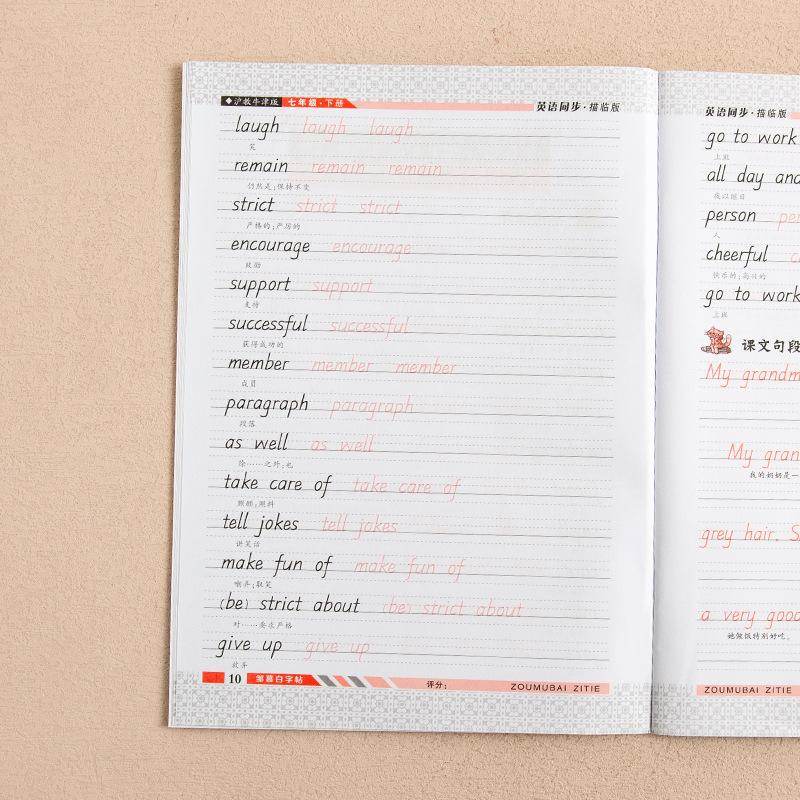 ◆沪教牛津版 七年级·下册 英语同步·描临版
laugh laugh laugh
笑
remain remain remain
仍然是;保持不变
strict strict strict
严格的;严厉的
encourage encourage
鼓励
support support
支持
successful successful
获得成功的
member member member
成员
paragraph paragraph
段落
as well as well
除……之外;也
take care of take care of
照顾;照料
tell jokes tell jokes
讲笑话
make fun of make fun of
嘲弄;取笑
(be) strict about (be) strict about
对……要求严格
give up give up
放弃
10 邹慕白字帖 评分: ZOUMUBAI ZITIE
英语同步·描临版
go to work
上班
all day and
夜以继日
person pe
人
cheerful c
快乐的;高兴的
go to work
上班
课文句段
My grandm
My gran
我的奶奶是一
grey hair. S
a very good
她做饭特别好吃。
ZOUMUBAI ZITIE